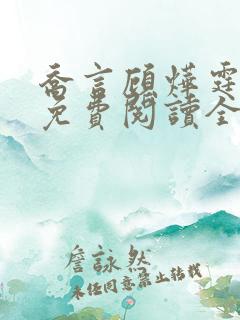 喬言顧燁霆
免費閱讀全
詹詠然
未任同意禁止轉載